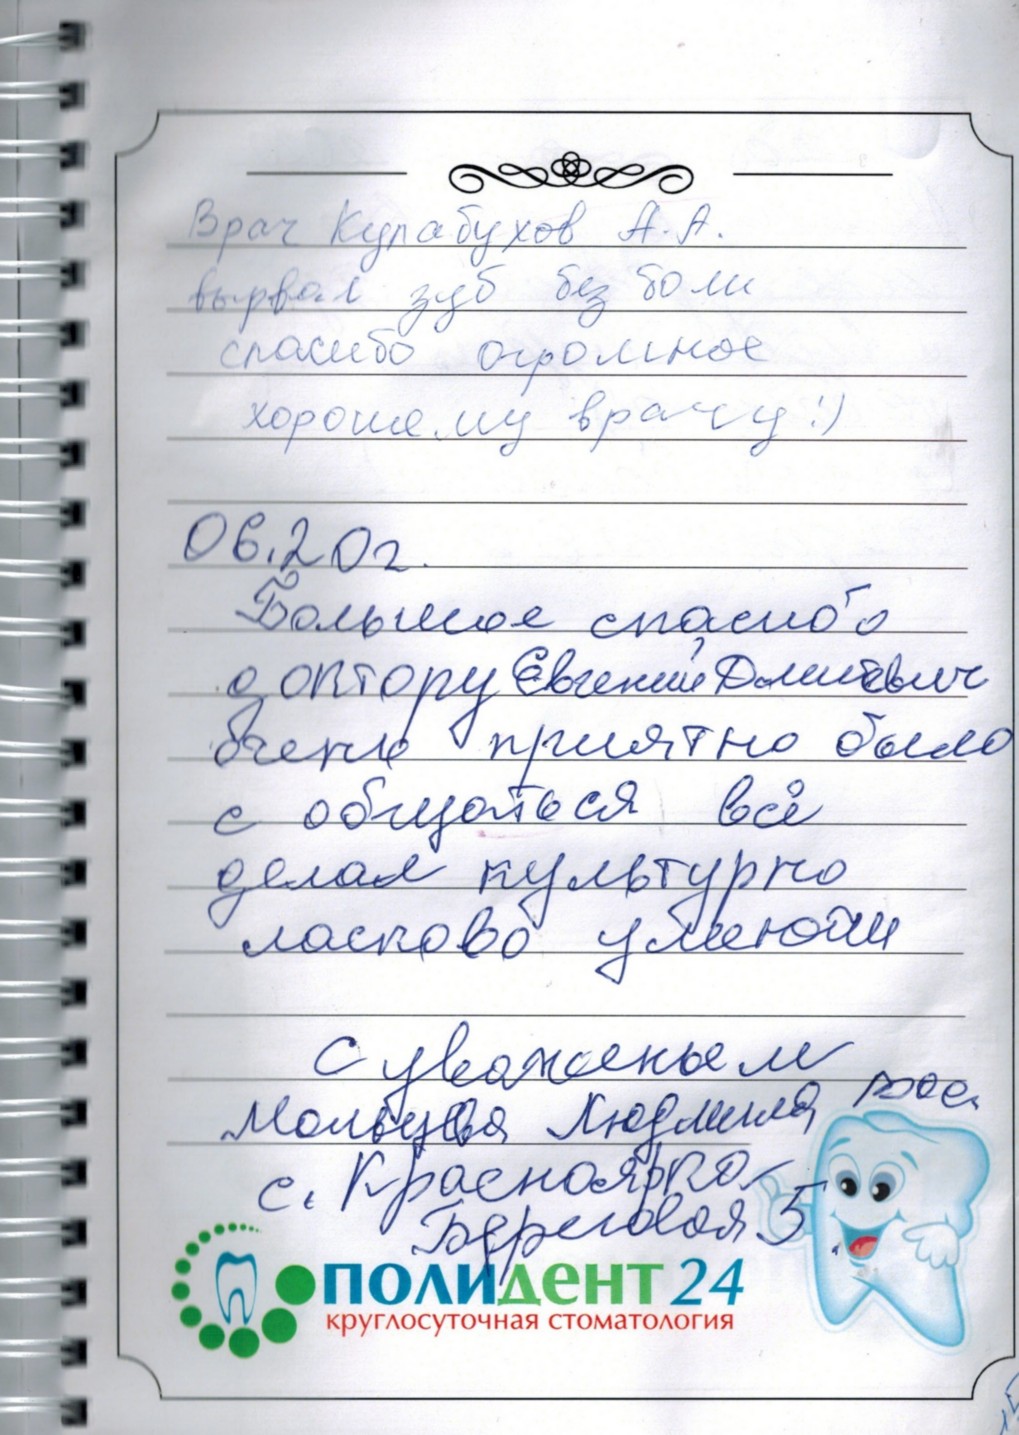 Врач Кулабухов А.А.
вырвал зуб без боли
спасибо огромное
хорошему врачу :)
06.20г.
Большое спасибо
доктору Евгений Дмитевич
очень приятно было
с общаться всё
делал культурно
ласково
С уваженьем
Людмила
с. Красноярка
Береговая 5
ПОЛИДЕНТ 24
круглосуточная стоматология